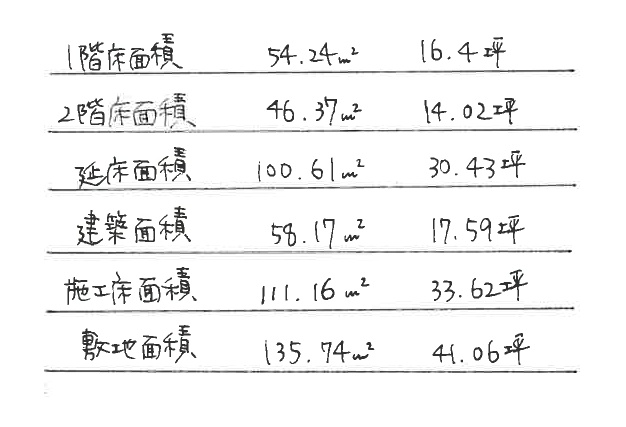 1階床面積 54.24m² 16.4坪
2階床面積 46.37m² 14.02坪
延床面積 100.61m² 30.43坪
建築面積 58.17m² 17.59坪
施工床面積 111.16m² 33.62坪
敷地面積 135.74m² 41.06坪